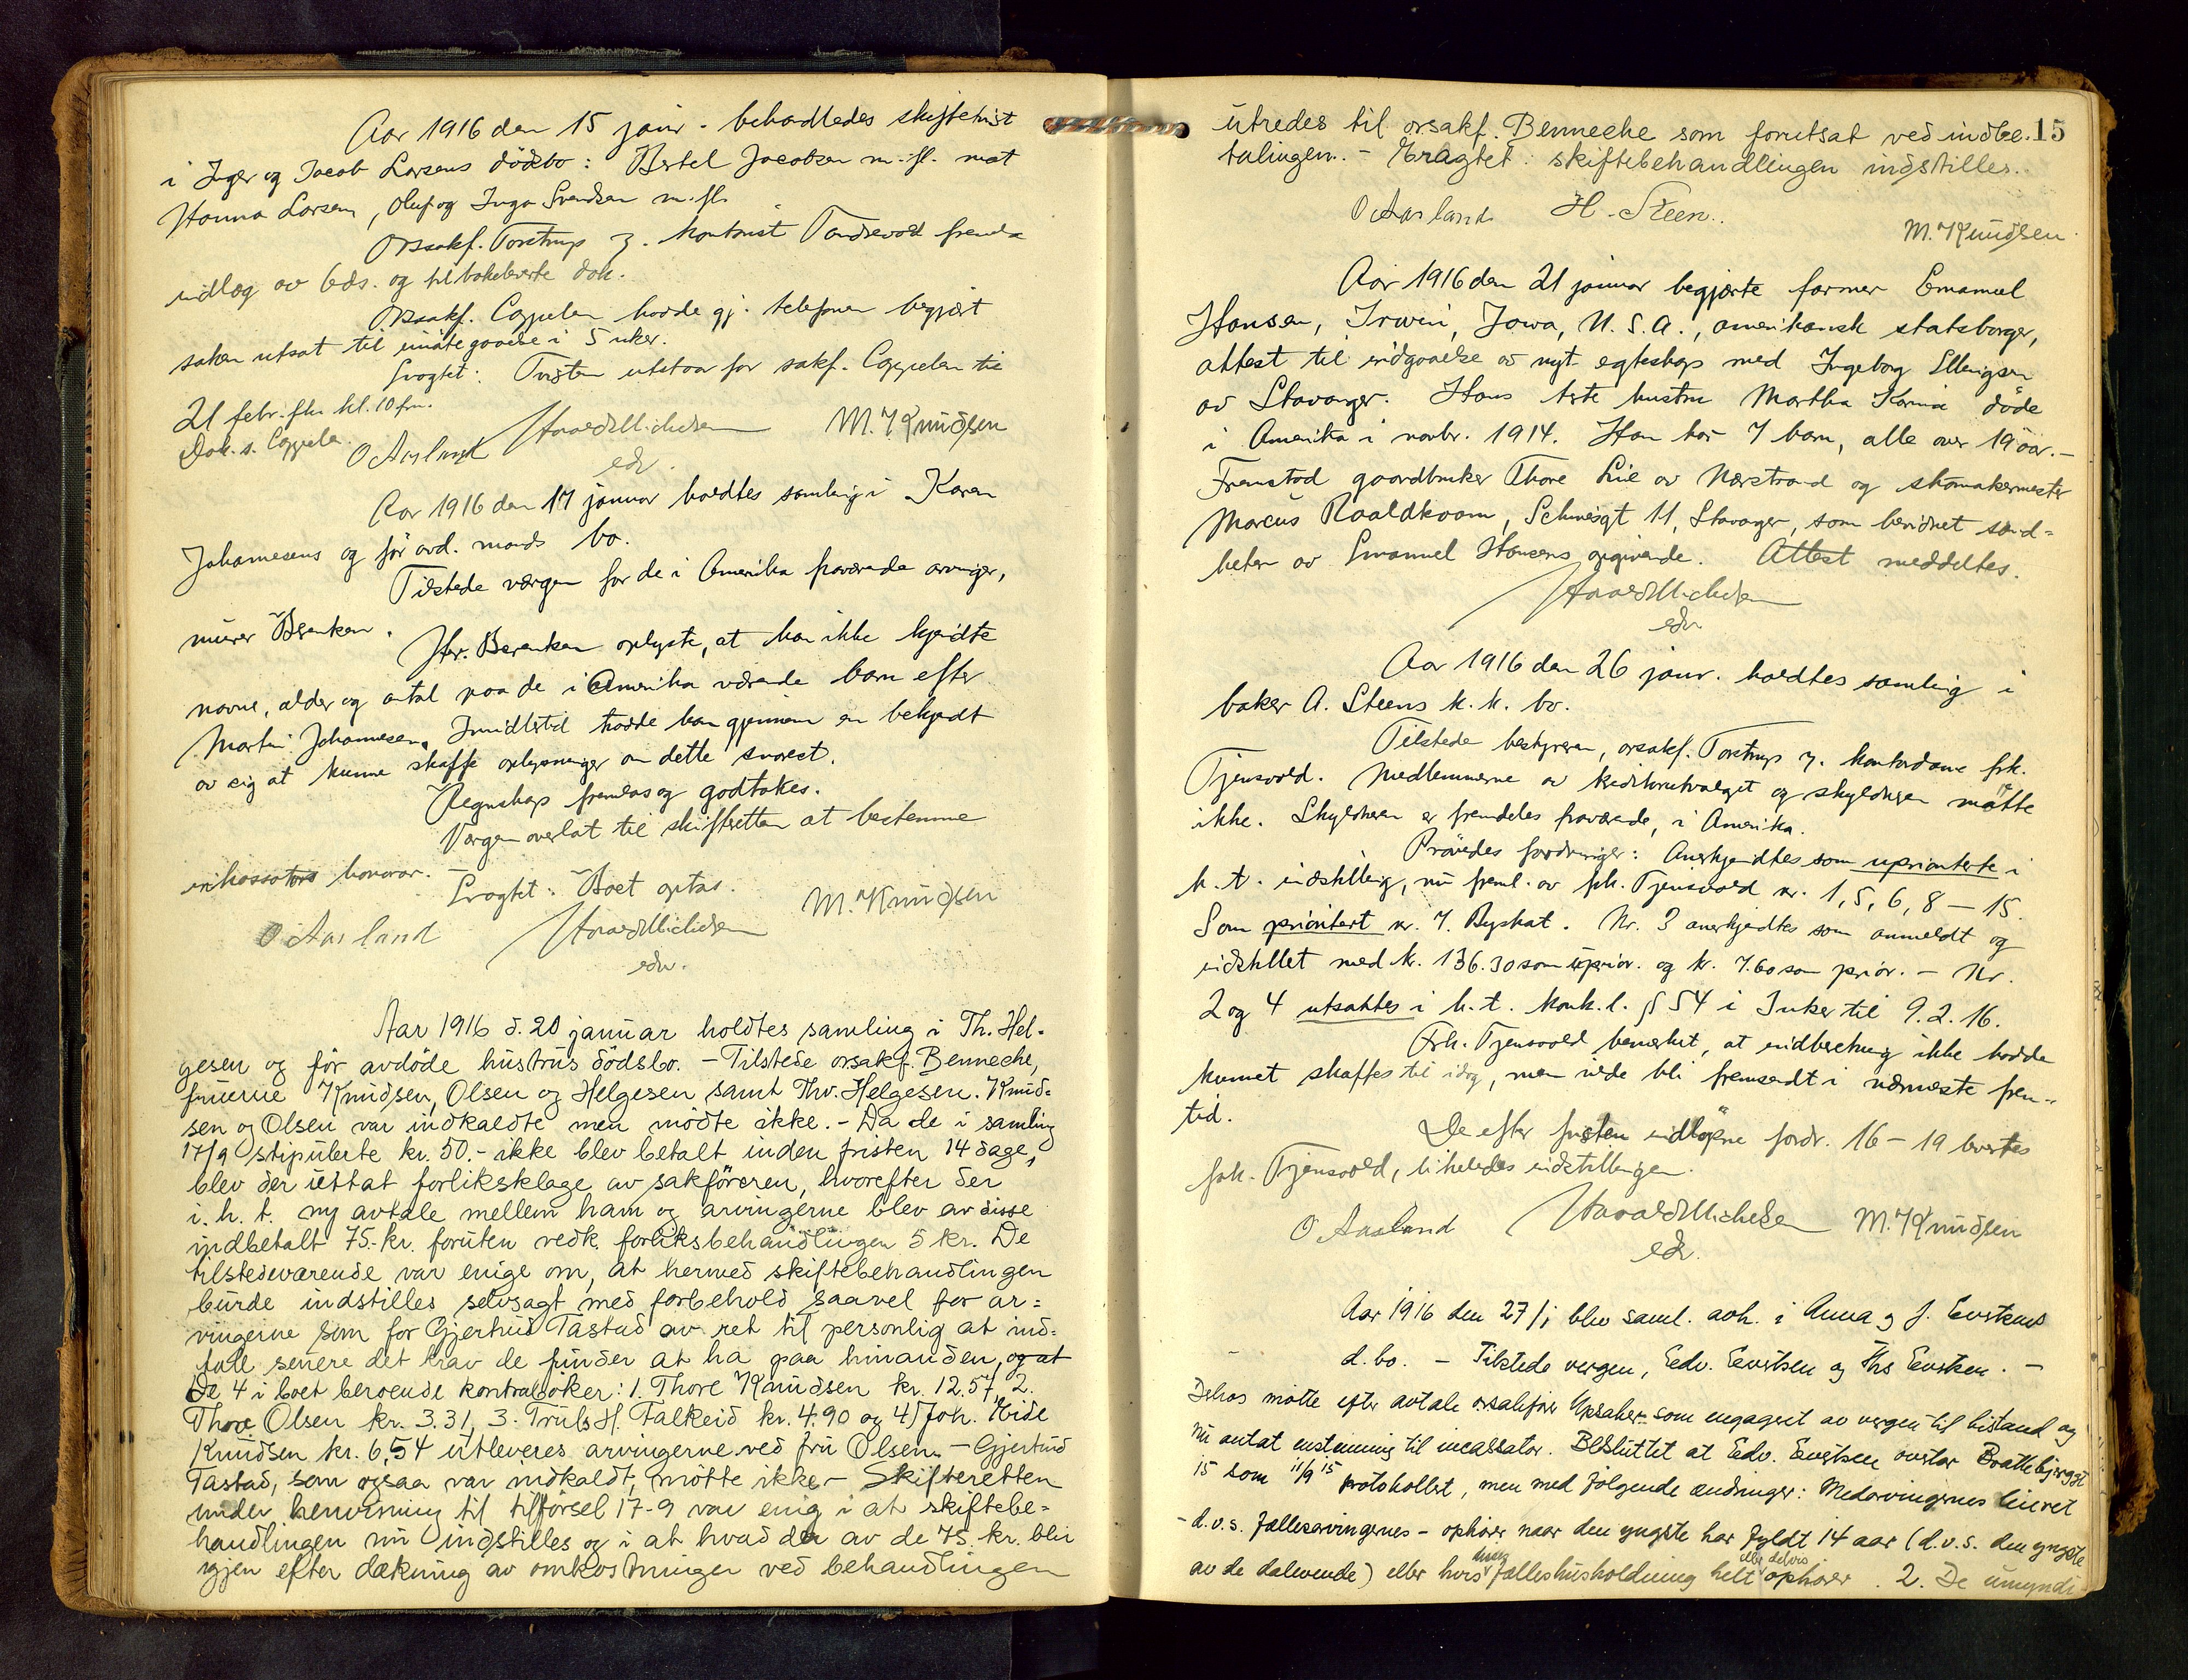 Aar 1916 den 15 janr. behandledes skiftetvist
i Inger og Jacob Larsens dödsbo: Bertel Jacobsen m. fl. mot
Hanna Larsen, Oluf og Inga Svendsen m. fl.
Orsakf. Torstrup v. kontorist Tandrevold fremla
indlæg av ds. og tilbakeleverte dok.
Orsakf. Cappelen hadde gj. telefonen begjært
saken utsat til imøtegaaelse i 5 uker.
Eragtet: Tvisten utstaar for sakf. Cappelen til
21 febr. fkn kl. 10 fm.
Dok. s. Cappelen.
O Aasland Harald Michelsen M. Knudsen
edv.
Aar 1916 den 17 januar holdtes samling i Karen
Johannesens og før avd. mands bo.
Tilstede værgen for de i Amerika fraværende arvinger,
murer Berentsen.
Hr. Berentsen oplyste, at han ikke kjendte
navne, alder og antal paa de i Amerika værende barn efter
Martin Johannesen. Imidlertid trodde han gjennem en bekjendt
av sig at kunne skaffe oplysninger om dette snarest.
Regnskap fremlas og godtokes.
Værgen overlot til skifteretten at bestemme
inkassators honorar.
Eragtet: Boet optas.
O Aasland Harald Michelsen M. Knudsen
edv.
Aar 1916 d. 20 januar holdtes samling i Th. Hel-
gesen og før avdöde hustrus dödsbo. - Tilstede orsakf. Benneche,
fruerne Knudsen, Olsen og Helgesen samt Thv. Helgesen. Knud-
sen og Olsen var indkaldte men mödte ikke. - Da de i samling
17/9 stipulerte kr. 50.- ikke blev betalt inden fristen 14 dage,
blev der uttat forliksklage av sakföreren, hvorefter der
i. h. t. ny avtale mellem ham og arvingerne blev av disse
indbetalt 75.- kr. foruten vedk. forliksbehandlingen 5 kr. De
tilstedeværende var enige om, at hermed skiftebehandlingen
burde indstilles selvsagt med forbehold saavel for ar-
vingerne som for Gjertrud Tastad av ret til personlig at ind-
tale senere det krav de finder at ha paa hinanden, og at
De 4 i boet beroende kontraböker: 1. Thore Knudsen kr. 12.57, 2.
Thore Olsen kr. 3.31, 3. Truls H. Falkeid kr. 4.90 og 4) Joh. Eide
Knudsen kr. 6,54 utleveres arvingerne ved fru Olsen. - Gjertrud
Tastad, som ogsaa var indkaldt, mötte ikke. - Skifteretten
under henvisning til tilförsel 17-9 var enig i at skiftebe-
handlingen nu indstilles og i at hvad der av de 75. kr. blir
igjen efter dækning av omkostninger ved behandlingen
15
utredes til orsakf. Benneche som forutsat ved indbe-
talingen. - Eragtet: skiftebehandlingen indstilles.
O Aasland H. Steen. M. Knudsen
Aar 1916 den 21 januar begjærte farmer Emanuel
Hansen, Irwin, Jowa, U. S. A., amerikansk statsborger,
attest til indgaaelse av nyt egteskap med Ingeborg Ellingsen
av Stavanger. Hans 1ste hustru Martha Karina döde
i Amerika i novbr. 1914. Han har 7 barn, alle over 19 aar. -
Fremstod gaardbruker Thore Lie av Nærstrand og skomakermester
Marcus Raaldkvam, Schmeisgt 11, Stavanger, som bevidnet sand-
heten av Emanuel Hansens opgivende. Attest meddeltes.
Harald Michelsen
edv.
Aar 1916 den 26 janr. holdtes samling i
baker A. Steens k. k. bo.
Tilstede bestyreren, orsakf. Torstrup v. kontordame frk.
Tjensvold. Medlemmerne av kreditorutvalget og skyldneren mötte
ikke. Skyldneren er fremdeles fraværende, i Amerika.
Prövedes fordringer: Anerkjendtes som uprioriterte i
h. t. indstilling, nu freml. av frk. Tjensvold nr. 1, 5, 6, 8 - 15.
Som prioritert nr. 7. Byskat. Nr. 3 anerkjendtes som anmeldt og
indstillet med kr. 136.30 som uprior. og kr. 7.60 som prior. - Nr.
2 og 4 utsattes i h. t. konk. l. § 54 i 2 uker til 9. 2. 16.
Frk. Tjensvold bemerket, at indberetning ikke hadde
kunnet skaffes til idag, men vilde bli fremsendt i nærmeste frem-
tid.
De efter fristen indløpne fordr. 16 - 19 levertes
frk. Tjensvold, likeledes indstillingen.
O Aasland Harald Michelsen M. Knudsen
edv.
Aar 1916 den 27/1 blev saml. avh. i Anna og J. Evertsens
d. bo. - Tilstede vergen, Edv. Evertsen og Ths Evertsen. -
Dehos møtte efter avtale orsakfører Opsaher som engagert av vergen til bistand og
nu antat enstemmig til incassator. Besluttet at Edv. Evertsen overtar Brattebjergst
15 som 11/9 15 protokollert, men med følgende ændringer: Medarvingernes liieret
- d.v.s. fællesarvingernes - ophører naar den yngste har fyldt 14 aar (d.v.s. den yngste
av de dalevende) eller hvis fælleshusholdning helt eller delvis ophører. 2. De umyndi-